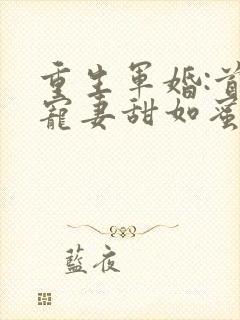 重生軍婚:首
寵妻甜如蜜
藍夜